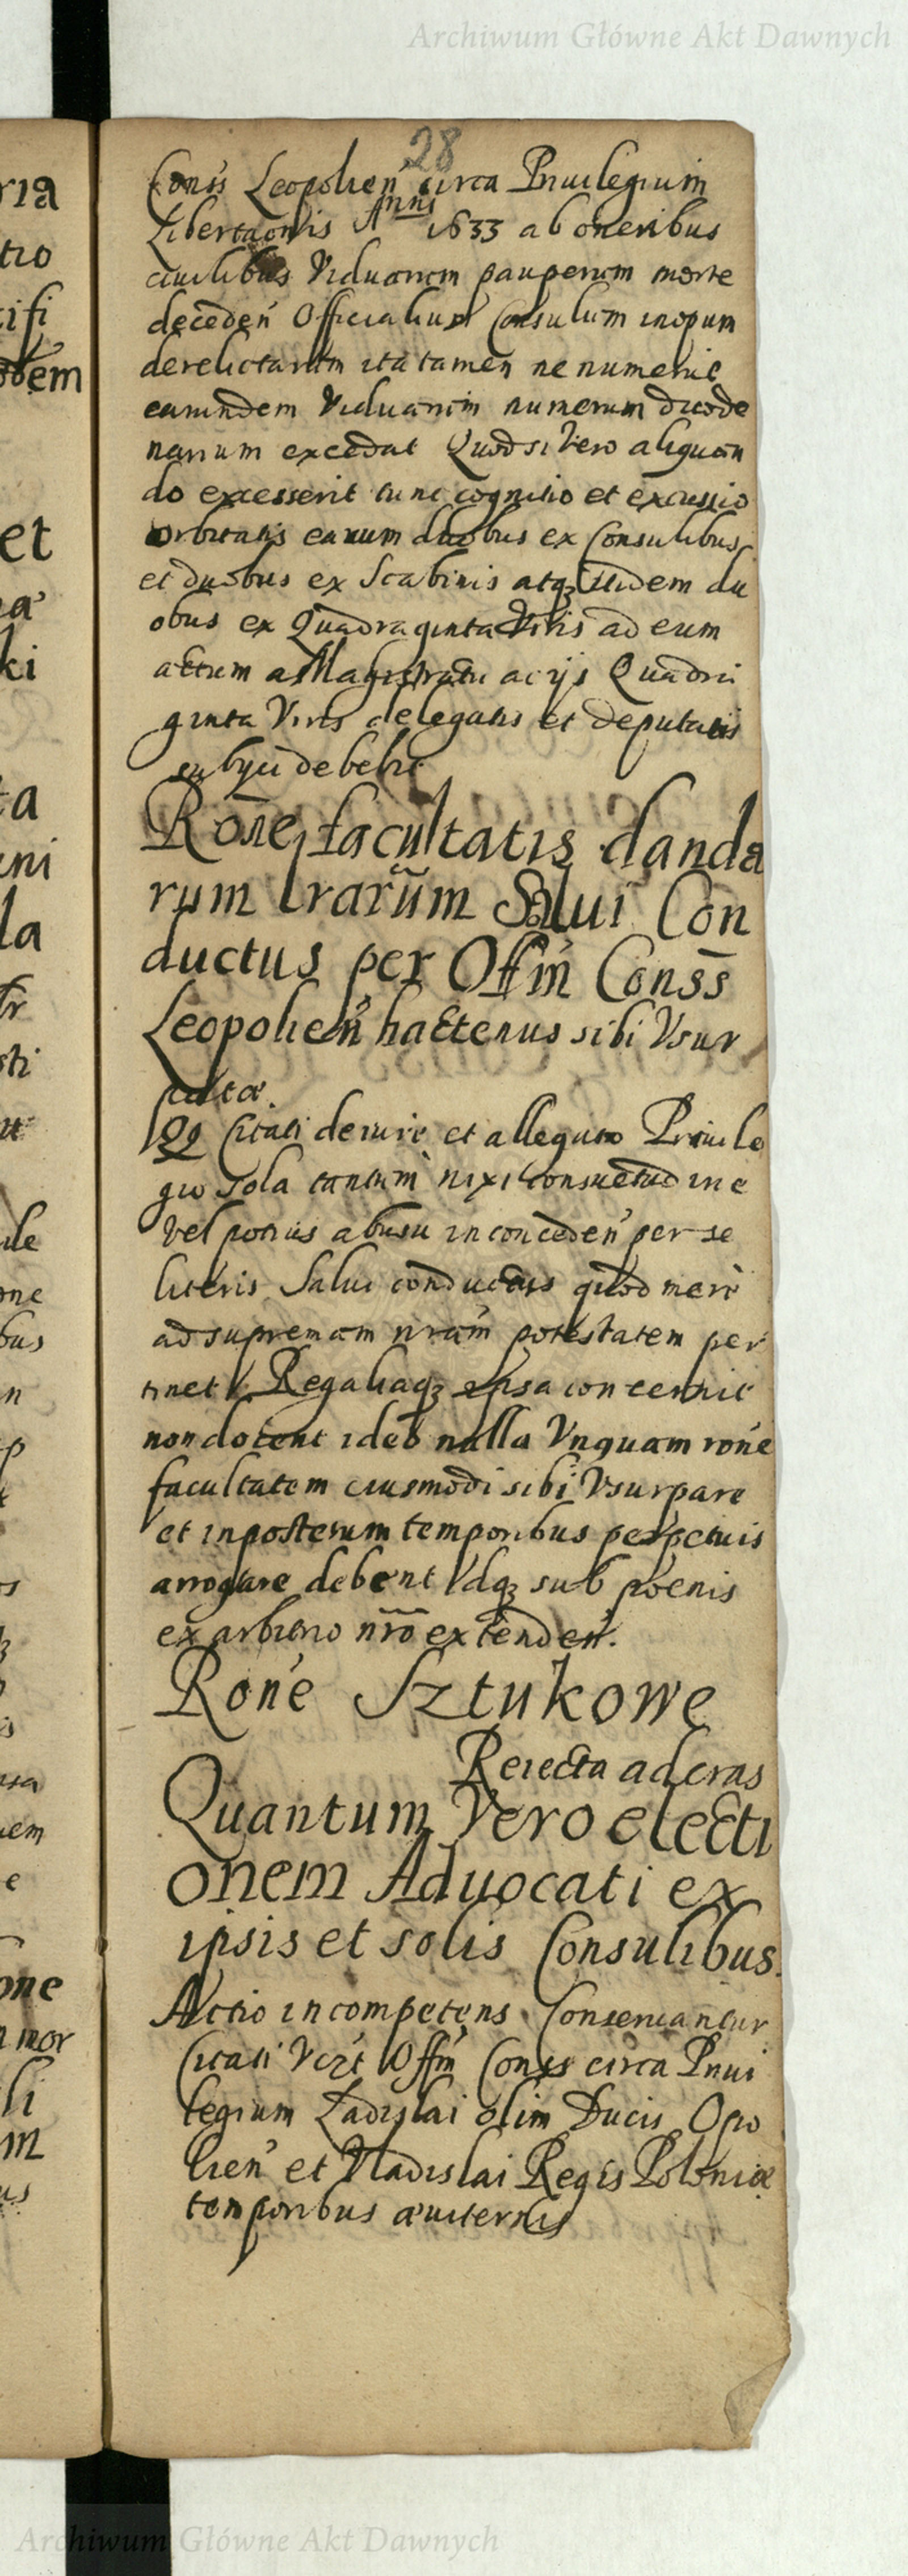 Archiwum Główne Akt Dawnych
28
Conss Leopolien circa Priuilegium
Libertaonis Anni 1633 ab oneribus
ciuilibus Viduarum pauperum morte
deceden Officialium Consulum inopum
derelictarum ita tamen ne numerus
earundem Viduarum numerum duode
narium excedat Quod si Vero aliquan
do excesserit tunc cognitio et excussio
orbitatis earum duobus ex Consulibus
et duobus ex Scabinis atq itidem du
obus ex Quadraginta Viris ad eum
actum a Magistratu ac ijs Quadra
ginta Viris delegatis et deputatis
subijci debebit
Rone facultatis danda
rum lrarum Salui Con
ductus per Offm Conss
Leopolien hactenus sibi Vsur
patæ.
Qq Citati de iure et allegato Priuile
gio sola tantum nixi consuetudine
vel potius abusu in conceden per se
literis Salui conductus quod mere
ad supremam nram potestatem per
tinet Regaliaq ipsa concernit
non docent ideo nulla Vnquam rone
facultatem eiusmodi sibi Vsurpare
et in posterum temporibus perpetuis
arrogare debent Idq sub poenis
ex arbitrio nro extenden.
Rone Sztukowe
Reiecta ad cras
Quantum Vero electi
onem Aduocati ex
ipsis et solis Consulibus.
Actio incompetens Conseruantur
Citati Offm Conss circa Priui
legium Ladislai olim Ducis Opo
lien et Vladislai Regis Poloniæ
temporibus æuiternis
Archiwum Główne Akt Dawnych